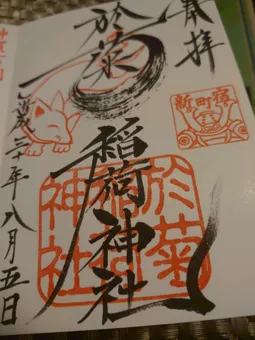 奉拝
新町宿
於菊
稲荷神社
於菊稲荷神社
平成三十年八月五日